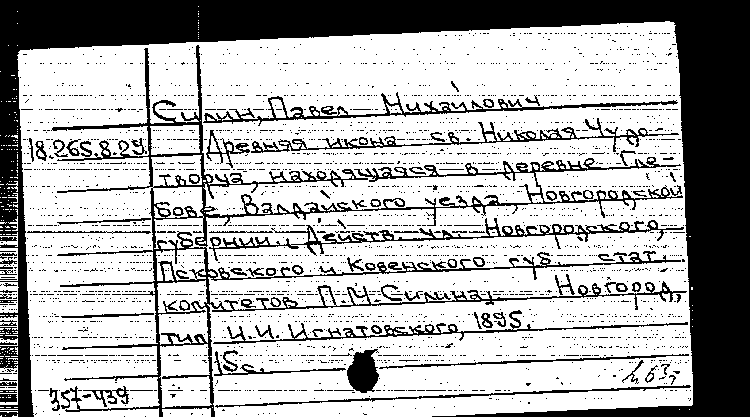 Силин, Павел Михайлович
18.265.8.29. Древняя икона св. Николая Чудо-
творца, находящаяся в деревне Гле-
бове, Валдайского уезда, Новгородской
губернии. Действ. чл. Новгородского,
Псковского и Ковенского губ. стат.
комитетов П.М. Силина. Новгород,
тип. И.И. Игнатовского, 1895.
15 с.
357-439